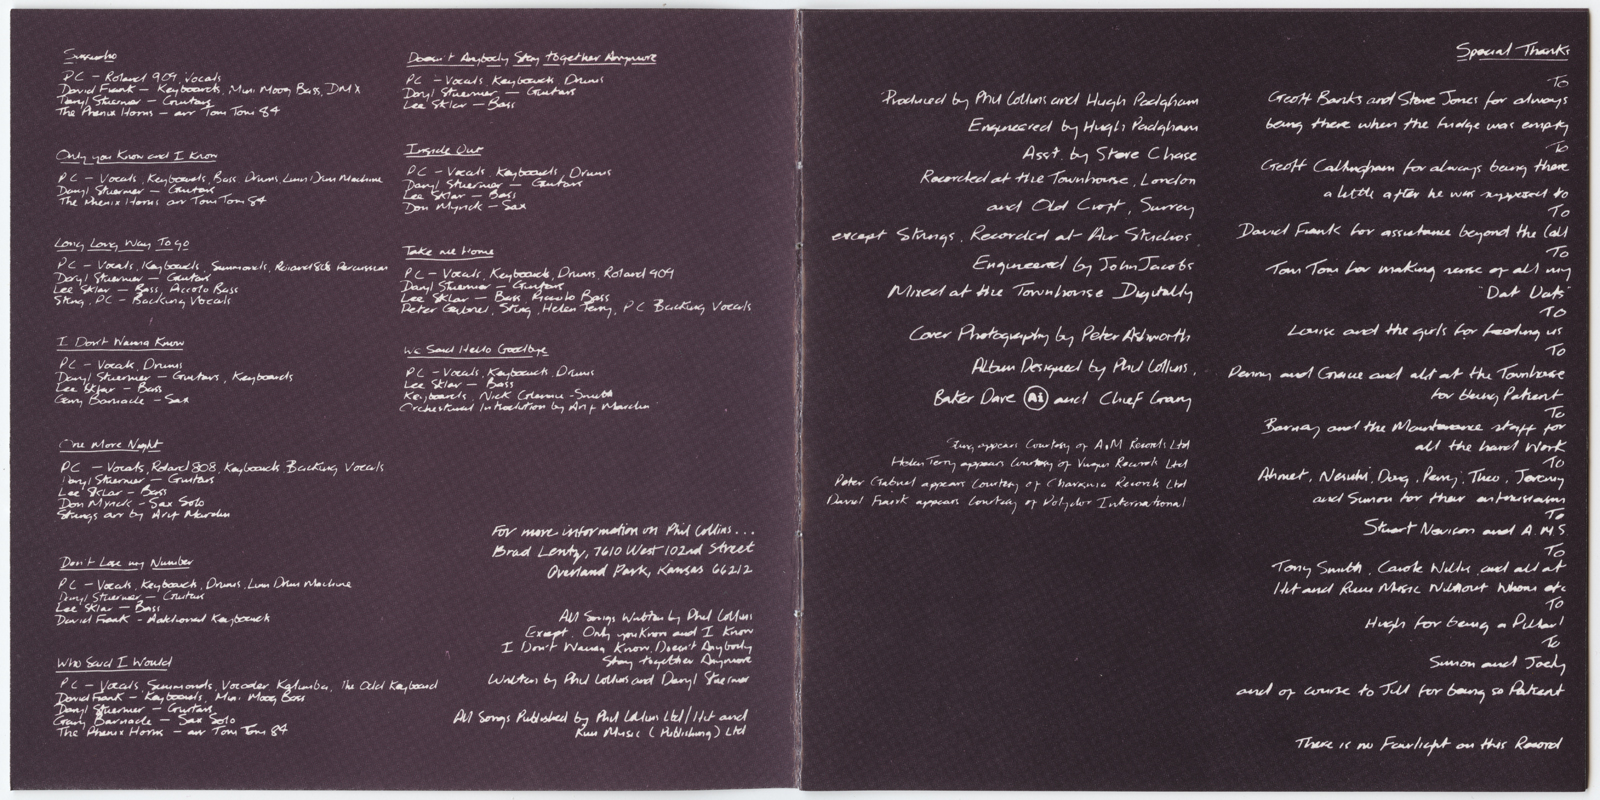 Sussudio
PC - Roland 909, Vocals
David Frank - Keyboards, Mini Moog Bass, DMX
Daryl Stuermer - Guitars
The Phenix Horns - arr Tom Tom 84
Only you Know and I Know
PC - Vocals, Keyboards, Bass Drums, Linn Drum Machine
Daryl Stuermer - Guitars
The Phenix Horns arr Tom Tom 84
Long Long Way To go
PC - Vocals, Keyboards, Simmonds, Roland 808 Percussion
Daryl Stuermer - Guitar
Lee Sklar - Bass, Piccolo Bass
Sting, PC - Backing Vocals
I Don't Wanna Know
PC - Vocals, Drums
Daryl Stuermer - Guitars, Keyboards
Lee Sklar - Bass
Gary Barnacle - Sax
One More Night
PC - Vocals, Roland 808, Keyboards, Backing Vocals
Daryl Stuermer - Guitars
Lee Sklar - Bass
Don Myrick - Sax Solo
Strings arr by Arif Mardin
Don't Lose my Number
PC - Vocals, Keyboards, Drums, Linn Drum Machine
Daryl Stuermer - Guitars
Lee Sklar - Bass
David Frank - Additional Keyboards
Who Said I Would
PC - Vocals, Simmonds, Vocoder Kalimba, The Odd Keyboard
David Frank - Keyboards, Mini Moog Bass
Daryl Stuermer - Guitars
Gary Barnacle - Sax Solo
The Phenix Horns - arr Tom Tom 84
Doesn't Anybody Stay together Anymore
PC - Vocals, Keyboards, Drums
Daryl Stuermer - Guitars
Lee Sklar - Bass
Inside Out
PC - Vocals, Keyboards, Drums
Daryl Stuermer - Guitars
Lee Sklar - Bass
Don Myrick - Sax
Take me Home
PC - Vocals, Keyboards, Drums, Roland 909
Daryl Stuermer - Guitars
Lee Sklar - Bass, Piccolo Bass
Peter Gabriel, Sting, Helen Terry, PC Backing Vocals
We Said Hello Goodbye
PC - Vocals, Keyboards, Drums
Lee Sklar - Bass
Keyboards, Nick Glennie-Smith
Orchestral Introduction by Arif Mardin
For more information on Phil Collins...
Brad Lentz, 7610 West 102nd Street
Overland Park, Kansas 66212
All Songs Written by Phil Collins
Except, Only you Know and I Know
I Don't Wanna Know, Doesn't Anybody
Stay together Anymore
Written by Phil Collins and Daryl Stuermer
All Songs Published by Phil Collins Ltd/Hit and
Run Music (Publishing) Ltd
Produced by Phil Collins and Hugh Padgham
Engineered by Hugh Padgham
Asst. by Steve Chase
Recorded at the Townhouse, London
and Old Croft, Surrey
except Strings, Recorded at Air Studios
Engineered by John Jacobs
Mixed at the Townhouse Digitally
Cover Photography by Peter Ashworth
Album Designed by Phil Collins,
Baker Dave Ai and Chief Grany
Sting appears Courtesy of A&M Records Ltd
Helen Terry appears Courtesy of Virgin Records Ltd
Peter Gabriel appears Courtesy of Charisma Records Ltd
David Frank appears Courtesy of Polydor International
Special Thanks
To
Geoff Banks and Steve Jones for always
being there when the fridge was empty
To
Geoff Callingham for always being there
a little after he was supposed to
To
David Frank for assistance beyond the Call
To
Tom Tom for making sense of all my
"Dat Dats"
TO
Louise and the girls for feeding us
To
Penny and Gracie and all at the Townhouse
for being Patient
To
Barney and the Maintenance staff for
all the hard Work
To
Ahmet, Nesuhi, Doug, Perry, Theo, Jeremy
and Simon for their enthusiasm
To
Stuart Nevison and A.M.S.
To
Tony Smith, Carole Willis, and all at
Hit and Run Music Without Whom etc
To
Hugh for being a Pillar!
To
Simon and Joely
and of course to Jill for being so Patient
There is no Fairlight on this Record